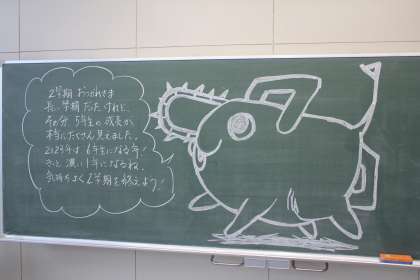 2学期 おつかれさま
長い学期だったけれど、
その分、5年生の成長が
本当にたくさん見えました。
2024年は、6年生になる年!
きっと濃い1年になるね。
気持ちよく2学期を終えよう!